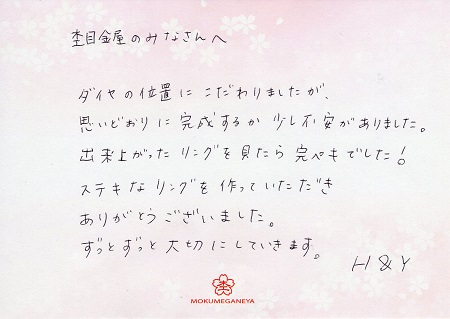 杢目金屋のみなさんへ
ダイヤの位置にこだわりましたが、
思いどおりに完成するか少し不安がありました。
出来上がったリングを見たら完ペキでした！
ステキなリングを作っていただき
ありがとうございました。
ずっとずっと大切にしていきます。
H & Y
MOKUMEGANEYA